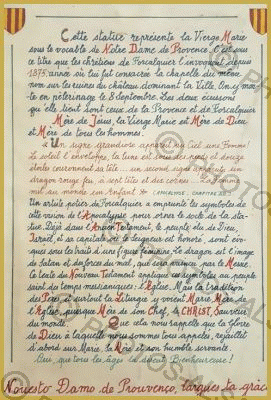 Cette statue représente la Vierge Marie
sous le vocable de Notre Dame de Provence. C'est sous
ce titre que les chrétiens de Forcalquier l'invoquent depuis
1875, année où lui fut consacrée la chapelle du même
nom sur les ruines du château dominant la Ville. On y mon-
te en pèlerinage le 8 Septembre. Les deux écussons
qui elle tient sont ceux de la Provence et de Forcalquier
Mère de Jésus, la Vierge Marie est Mère de Dieu
et Mère de tous les hommes.
Un signe grandiose apparut au Ciel une Femme!
Le soleil l'enveloppe, la lune est sous ses pieds et douze
étoiles couronnent sa tête... un second signe apparut: un
dragon rouge feu, à sept têtes et dix cornes... La Femme
mit au monde un Enfant * (APOCALYPSE CHAPITRE
Un artiste potier de Forcalquier a emprunté les symboles de
cette vision de l'Apocalypse pour orner le socle de la sta-
tue. Déjà dans l'Ancien Testament, le peuple élu de Dieu,
Israël, et sa capitale le Seigneur est honoré, sont évo-
qués sous les traits d'une figure féminine. Le dragon est l'image
de Satan et des forces du mal, que sera vaincu par le Messie.
le texte du Nouveau Testament applique ce symbole au peuple
saint des temps messianiques: l'Église. Mais la tradition
des Pères et surtout la Liturgie y voient Marie, Mère de
l'Église, puisque Mère de son Chef, le CHRIST, Sauveur
du monde.
Que cela nous rappelle que la Gloire
de Dieu à laquelle nous sommes tous appelés, rejaillit
d'abord sur Marie, la Mère et son humble servante.
Oui, que tous les âges la disent Bienheureuse!
Nouesto Damo de Prouvènço, largues ta grâc